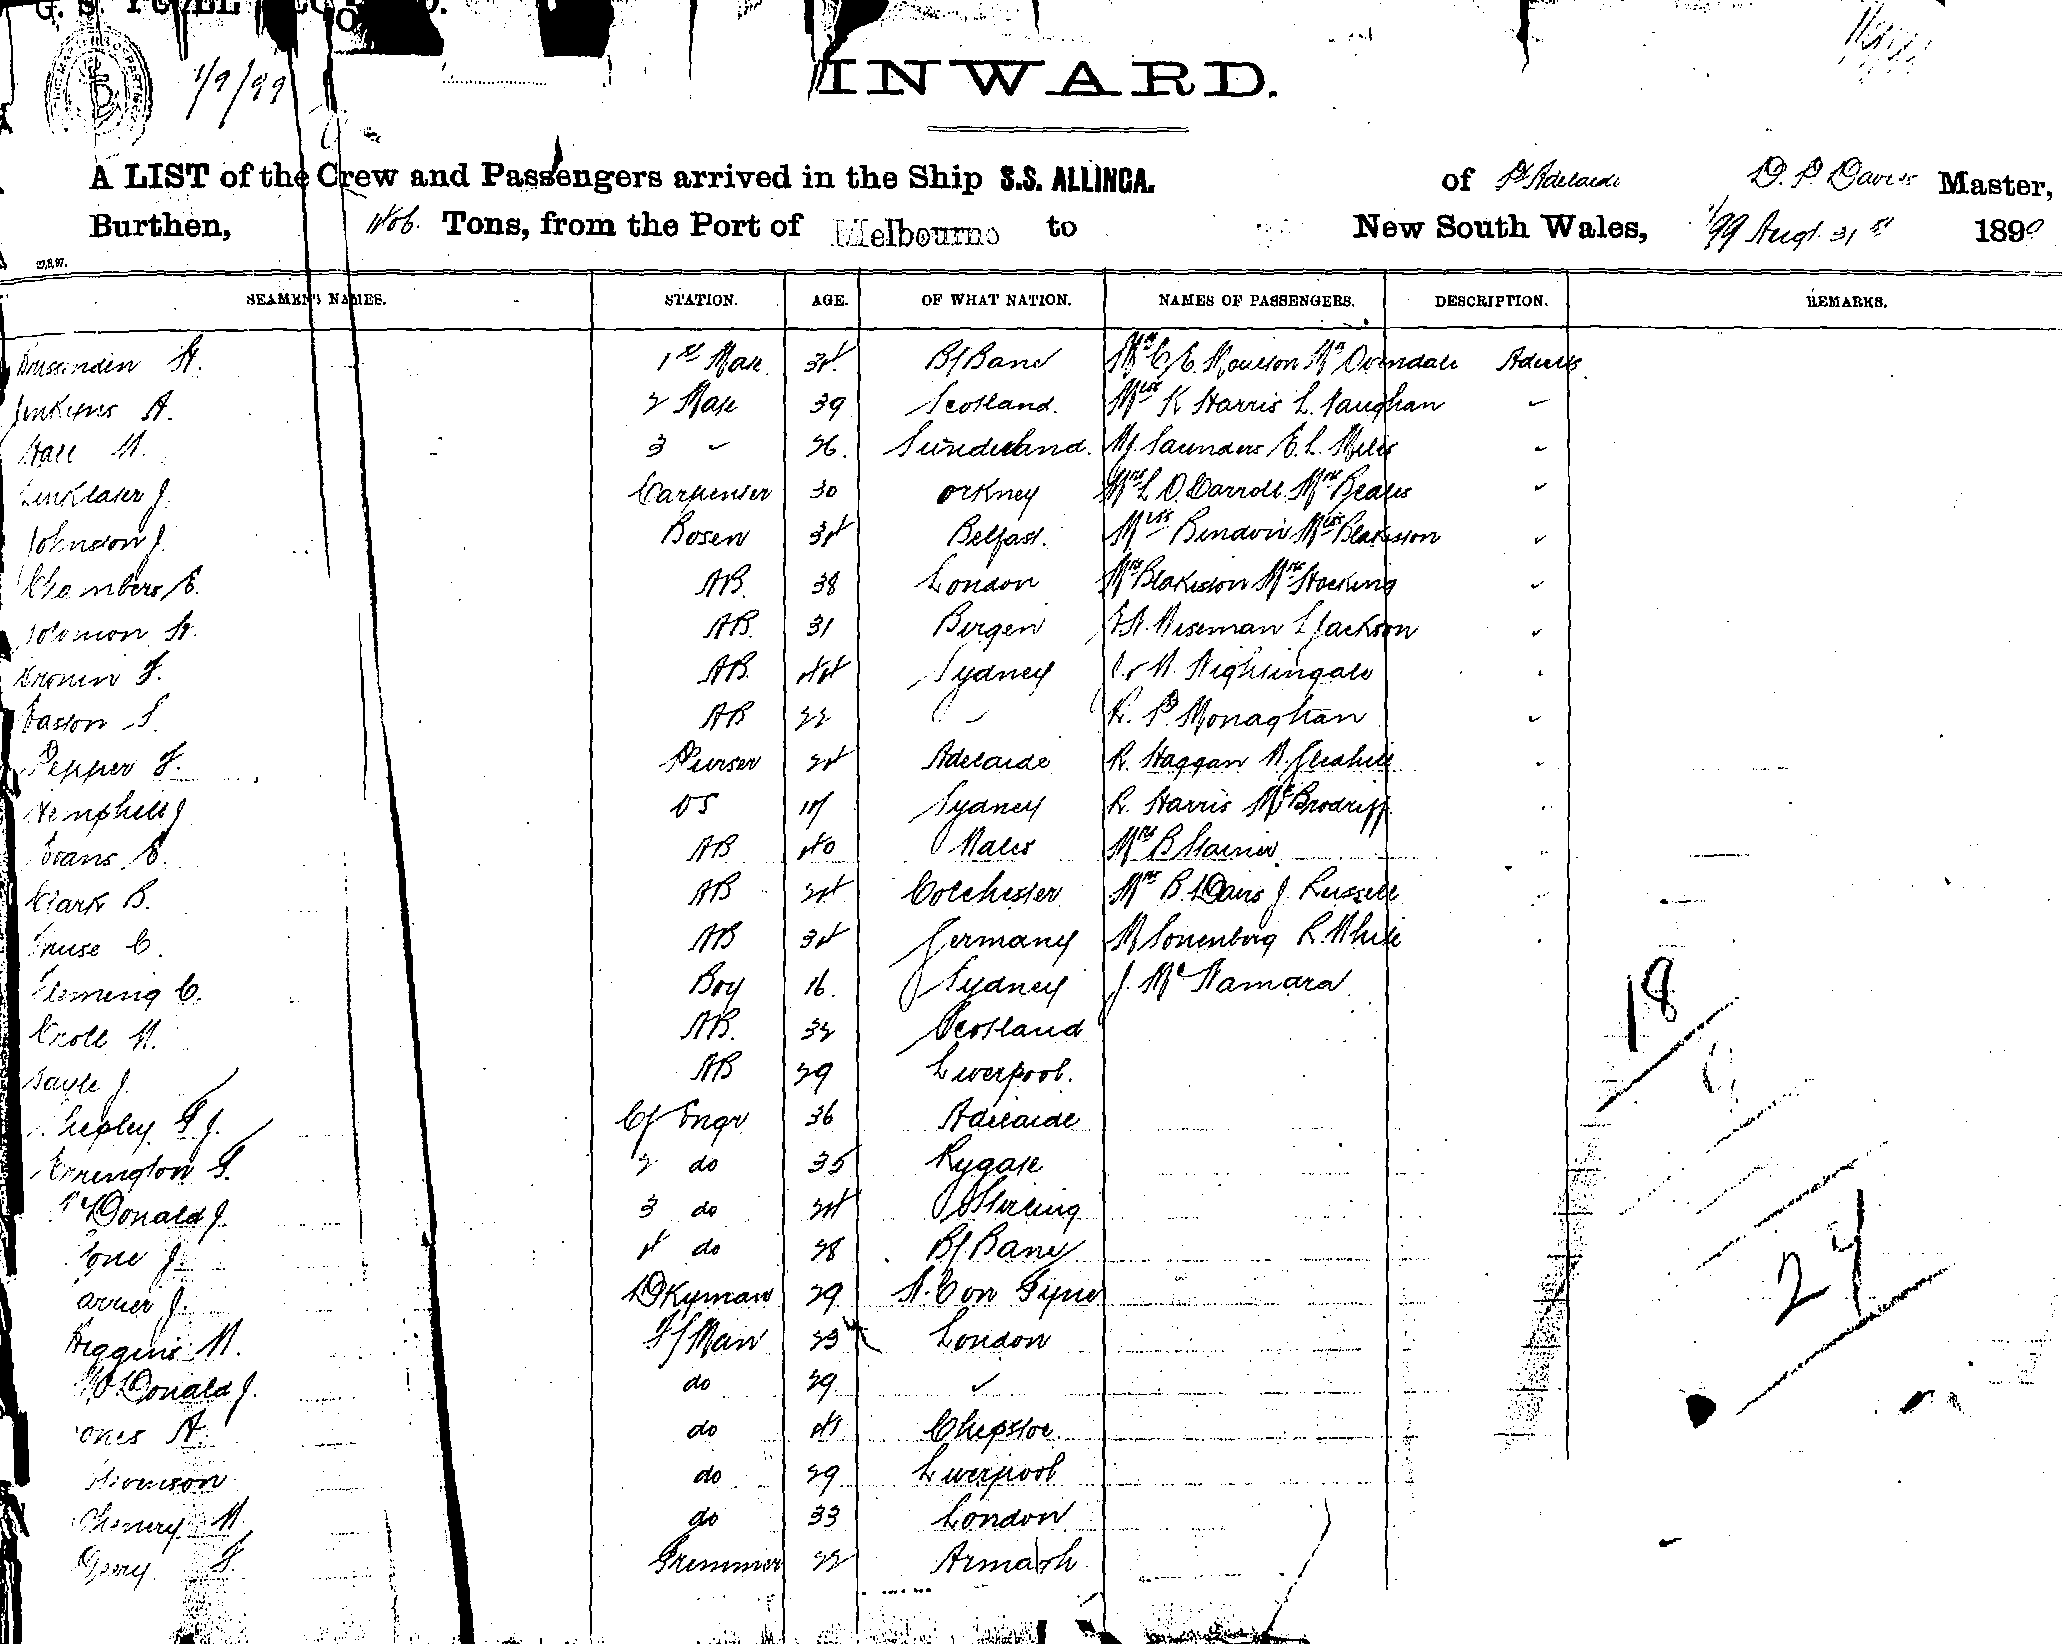 1/9/99
INWARD.
A LIST of the Crew and Passengers arrived in the Ship S.S. ALLINGA. of Pt Adelaide D. P. Davies Master,
Burthen, Tons, from the Port of Melbourne to New South Wales, Augt 31st 1899
27.8.97.
SEAMEN'S NAMES. STATION. AGE. OF WHAT NATION. NAMES OF PASSENGERS. DESCRIPTION. REMARKS.
H. 1st Mate 34 B/Bane Adults
Jenkins A. 2 Mate 39 Scotland. K Harris L. Vaughan
Hall W. 3 26. Sunderland. Saunders E. L. Miles
Linklater J. Carpenter 30 Orkney Mrs L O. Carroll Mrs Beales
Johnson J. Bosen 34 Belfast. Miss Miss Blakiston
Chambers E. AB. 38 London Mrs Blakiston Mrs Hocking
Solomon H. AB. 31 Bergen Wiseman L Jackson
Cronin F. AB. 44 Sydney W. Nightingale
Easton S. AB 22 R. P. Monaghan
Pepper F. Purser 24 Adelaide R. Haggan W. Gledhill
Hemphill J OS 17 Sydney R. Harris Mr Brodriff
Evans E. AB 40 Wales Mrs B Stainer
Clark B. AB 24 Colchester Mrs B. Davis J. Russell
Kruse C. AB 34 Germany M Sonenberg R. White
Fleming C. Boy 16. Sydney J. McNamara
Kroll W. AB. 32 Scotland
Sayle J. AB 29 Liverpool.
Shepley F J. Cf Engr 36 Adelaide
Errington F. 2 do 35 Rygate
McDonald J. 3 do 24 Stirling
J. 4 do 28 B/Bane
J. Dkyman 29 N. C on Tyne
Higgins W. F/Man 23 London
McDonald J. do 29
Jones A. do 41 Chepstoe
Stevenson do 29 Liverpool
W do 33 London
F. Trimmer 22 Armagh
18
24